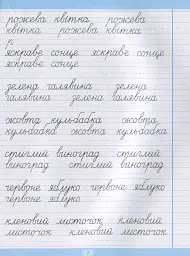 рожева квітка рожева
квітка рожева квітка
р
яскраве сонце яскраве сонце
яскраве сонце
зелена галявина зелена
галявина зелена галявина
жовта кульбабка жовта
кульбабка жовта кульбабка
стиглий виноград стиглий
виноград стиглий виноград
червоне яблуко червоне яблуко
червоне яблуко
кленовий листочок кленовий
листочок кленовий листочок